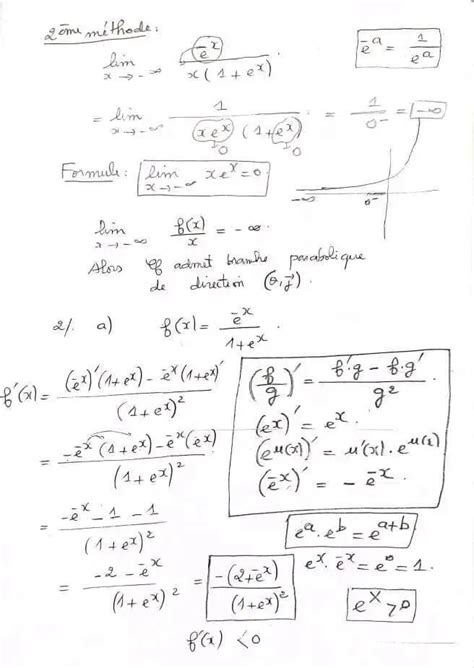 2ème méthode:
lim x→-∞ e^-x / x(1+e^x)
e^-a = 1/e^a
= lim x→-∞ 1 / (x e^x)(1+e^x) = 1/0^- = -∞
↓0 ↓0
Formule: lim x→-∞ xe^x=0
-∞ 0^-
lim x→-∞ f(x)/x = -∞
Alors Cf admet branche parabolique
de direction (O,j⃗).
2/. a) f(x) = e^-x / 1+e^x
f'(x) = (e^-x)'(1+e^x) - e^-x(1+e^x)' / (1+e^x)^2
= -e^-x(1+e^x) - e^-x(e^x) / (1+e^x)^2
= -e^-x - 1 - 1 / (1+e^x)^2
= -2 - e^-x / (1+e^x)^2 = -(2+e^-x) / (1+e^x)^2
f'(x) < 0
(f/g)' = f'g - f·g' / g^2
(e^x)' = e^x.
(e^u(x))' = u'(x)·e^u(x)
(e^-x)' = -e^-x.
e^a·e^b = e^a+b
e^x·e^-x = e^0 = 1.
e^x > 0